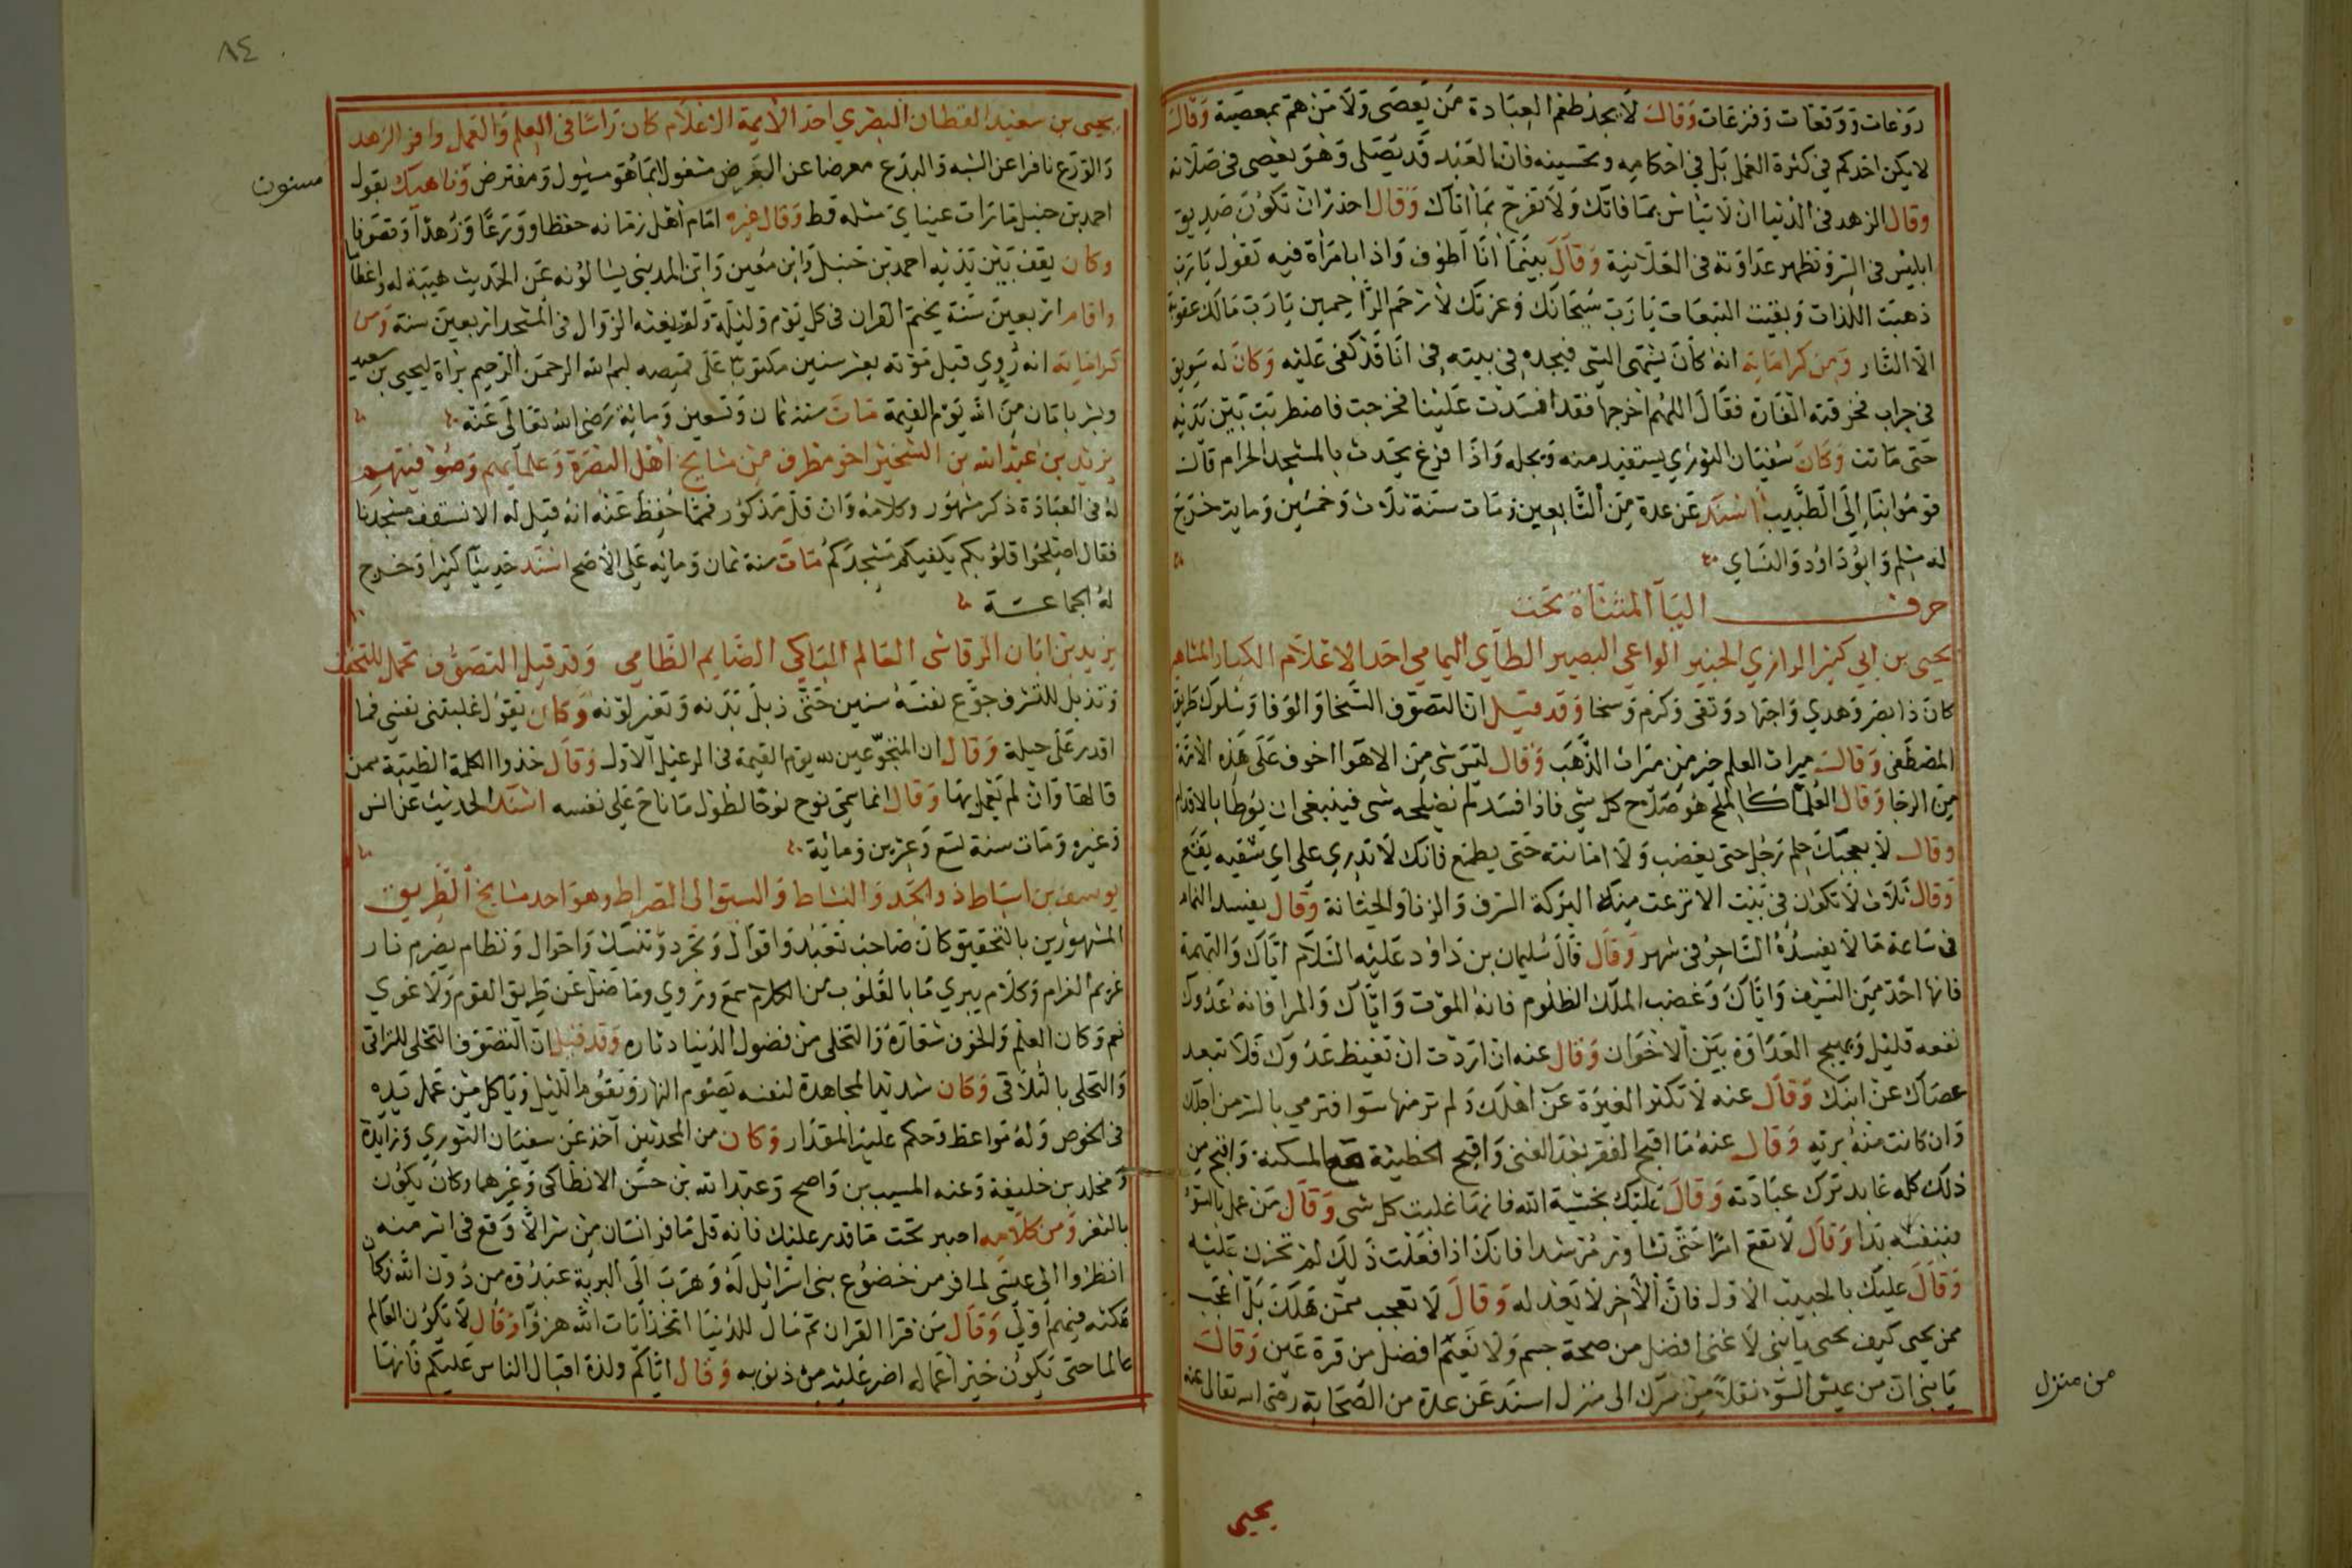 روعات ووقفات وفزعات وقال لا يجد طعم العبادة من يعصى ولا من هم بمعصية وقال
لا يكن احدكم في كثرة العمل بل في احكامه وتحسينه فان العبد قد يصلى وهو يعصى في صلاته
وقال الزهد في الدنيا ان لا تياس بما فاتك ولا تفرح بما اتاك وقال احذر ان تكون صديق
ابليس في السر وتظهر عداوته في العلانية وقال بينما انا اطوف واذا بامراة فيه تقول يا رب
ذهبت اللذات وبقيت التبعات يا رب سبحانك وعزتك لارحم الراحمين يا رب مالك عقوبة
الا النار ومن كراماته انه كان يشتهى الشي فيجده في بيته في انا قد كفى عليه وكان له سويق
في جراب فخرقته الفارة فقال اللهم اخرجها فقد افسدت علينا فخرجت فاضطربت بين يديه
حتى ماتت وكان سفيان الثوري يستفيد منه ويجله واذا فرغ يحدث بالمسجد الحرام قال
قوموا بنا الى الطبيب اسند عن عدة من التابعين ومات سنة ثلاث وخمسين وماية خرج
له مسلم وابو داود والنساي
حرف اليا المثناة تحت
يحيى بن ابي كثير الرازي الواعي البصير الطاي اليمامي احد الاعلام الكبار المشاهير
كان ذا بصر وهدي واجتهاد وتقى وكرم وسخا وقد قيل ان التصوف السخا والوفا وسلوك طريق
المصطفى وقال ميراث العلم خير من ميراث الذهب وقال ليس شى من الاهوا اخوف على هذه الامة
من الرجا وقال العلما كالملح هو صلاح كل شي فاذا فسد لم يصلحه شى فينبغى ان يوطا بالاقدام
وقال لا يعجبك حلم رجل حتى يغضب ولا امانته حتى يطمع فانك لا تدري على اي شقيه يقع
وقال ثلاث لا تكون في بيت الا نزعت منه البركة السرف والزنا والخيانة وقال يفسد النمام
في ساعة ما لا يفسده الساحر في شهر وقال قال سليمان بن داود عليه السلام اياك والنميمة
فانها احد من السيف واياك وغضب الملك الظلوم فانه الموت واياك والمرا فانه عدوك
نفعه قليل ويهيج العداوة بين الاخوان وقال عنه ان اردت ان تغيظ عدوك فلا تبعد
عصاك عن ابنك وقال عنه لا تكثر الغيرة عن اهلك ولم تر منها سوا فترمى بالشر من اجلك
وان كانت منه برية وقال عنه ما اقبح الفقر بعد الغنى واقبح الخطيئة مع المسكنة واقبح من
ذلك كله عابد ترك عبادته وقال عليك بخشية الله فانها غلبت كل شى وقال من عمل بالسوء
فبنفسه بدا وقال لا تقع امرا حتى تشاور مرشدا فانك اذا فعلت ذلك لم تحزن عليه
وقال عليك بالحبيب الاول فان الاخر لا يعدله وقال لا تعجب ممن هلك بل اعجب
ممن يحيى كيف يحيى يا بنى لا غنى افضل من صحة جسم ولا نعيم افضل من قرة عين وقال
يا بنى ان من عيش السوء نقلا من منزل الى منزل اسند عن عدة من الصحابة رضى الله تعالى عنه
من منزل
يحيى
٨٤
يحيى بن سعيد القطان البصري احد الايمة الاعلام كان راسا في العلم والعمل وافر الزهد
والورع نافرا عن الشبه والبدع معرضا عن العرض مشغولا بما هو مسئول ومفترض وناهيك بقول
مسنون
احمد بن حنبل ما رات عيناي مثله قط وقال غيره امام اهل زمانه حفظا وورعا وزهدا وتصوفا
وكان يقف بين يديه احمد بن حنبل وابن معين وابن المديني يسالونه عن الحديث هيبة له واعظاما
واقام اربعين سنة يختم القران في كل يوم وليلة ولم يفته الزوال في المسجد اربعين سنة ومن
كراماته انه روي قبل موته بعشر سنين مكتوبا على قميصه بسم الله الرحمن الرحيم براة ليحيى بن سعيد
وبشر بامان من الله يوم القيمة مات سنة ثمان وتسعين وماية رضى الله تعالى عنه
يزيد بن عبد الله بن الشخير اخو مطرف من مشايخ اهل البصرة وعلمايهم وصوفيتهم
له في العبادة ذكر مشهور وكلامه وان قل مذكور فمما حفظ عنه انه قيل له الا نسقف مسجدنا
فقال اصلحوا قلوبكم يكفيكم مسجدكم مات سنة ثمان وماية على الاصح اسند حديثا كثيرا وخرج
له الجماعة
يزيد بن ابان الرقاشى العالم الباكي الصايم الظامي وقد قيل التصوف تحمل للتخفف
وتذبل للتشرف جوع نفسه سنين حتى ذبل بدنه وتغير لونه وكان يقول غلبتنى نفسى فما
اقدر على حيلة وقال ان المتجوعين لله يوم القيمة في الرعيل الاول وقال خذوا الكلمة الطيبة ممن
قالها وان لم يعمل بها وقال انما سمى نوح نوحا لطول ما ناح على نفسه اسند الحديث عن انس
وغيره ومات سنة تسع وعشرين وماية
يوسف بن اسباط ذو الجد والنشاط والسبق الى الصراط وهو احد مشايخ الطريق
المشهورين بالتحقيق كان صاحب تعبد واقوال وتجرد وتنسك واحوال ونظام يضرم نار
غريم الغرام وكلام يبري ما بالقلوب من الكلام سمع وروي وما ضل عن طريق القوم ولا غوي
نعم وكان العلم والخوف شعاره والتخلى من فضول الدنيا دثاره وقد قيل ان التصوف التخلى للتراقى
والتحلى بالتلاقى وكان شديد المجاهدة لنفسه يصوم النهار ويقوم الليل وياكل من عمل يده
في الخوص وله مواعظ وحكم علية المقدار وكان من المحدثين اخذ عن سفيان الثوري وزايدة
ومخلد بن خليفة وعنه المسيب بن واضح وعبد الله بن حسن الانطاكى وغيرهما وكان يكون
بالثغر ومن كلامه اصبر تحت ما قدر عليك فانه قل ما فر انسان من شر الا وقع في اشر منه
انظروا الى عيسى لما فر من خضوع بنى اسرائيل له وهرب الى البرية عبدوه من دون الله وكان
مكثه فيهم اولى وقال من قرا القران ثم مال للدنيا اتخذ ايات الله هزوا وقال لا يكون العالم
عالما حتى يكون خير اعماله اضر عليه من ذنوبه وقال اياكم ولذة اقبال الناس عليكم فانها